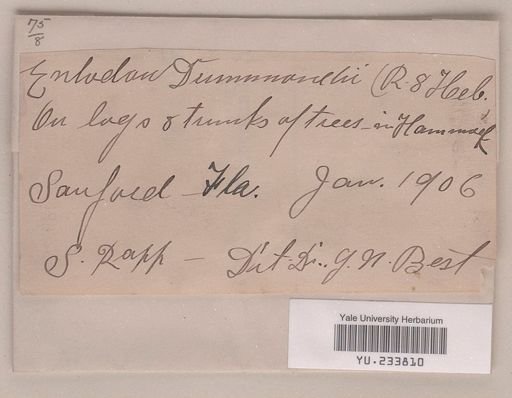 75
8
Entodon Drummondii (R. & Heb.
On logs & trunks of trees - in Hammock
Sanford - Fla. Jan. 1906
S. Rapp - Det. Dr. G. N. Best
Yale University Herbarium
YU.233810